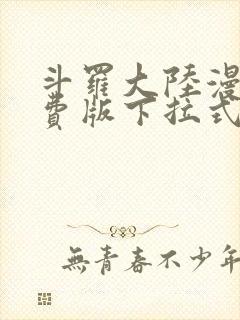 斗羅大陸漫
費版下拉式
無青春不少年